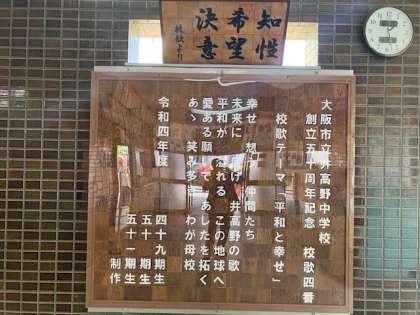 知性
希望
決意
校歌より
大阪市立井高野中学校
創立五十周年記念 校歌四番
校歌テーマ「平和と幸せ」
幸せ 想 仲間たち
未来に け 井高野の歌
平和が れる この地球へ
愛ある願い て あしたを拓く
あゝ 笑み多き わが母校
令和四年度
四十九期生
五十期生
五十一期生
制作